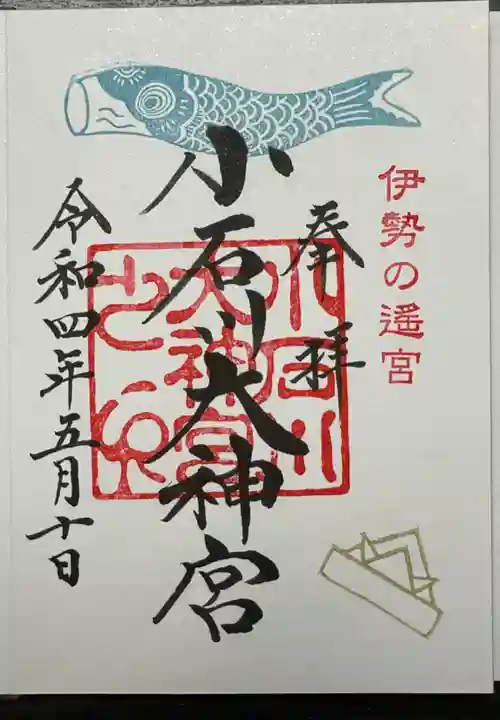 伊勢の遥宮
奉拝
小石川大神宮
小石川
大神宮
之印
令和四年五月十日